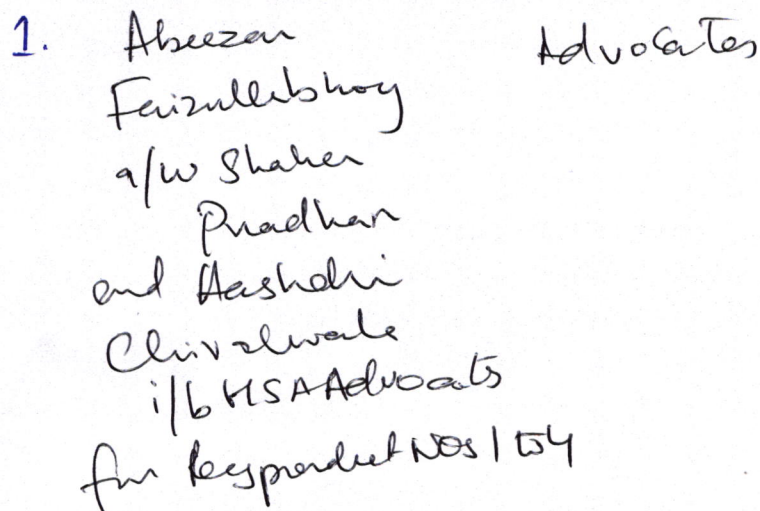 1. Abeezar Advocates
Faizullabhoy
a/w Shaher
Pradhan
and Aashdin
Chivalwala
i/b HSA Advocates
for Respondent Nos 1 to 4